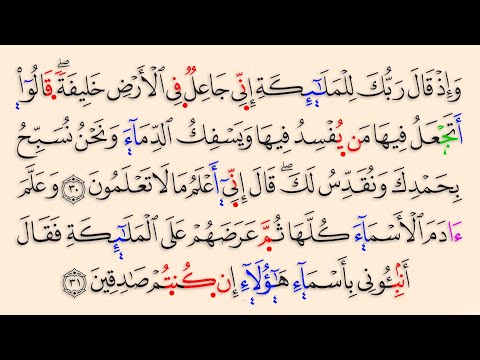 وَإِذۡ قَالَ رَبُّكَ لِلۡمَلَٰٓئِكَةِ إِنِّي جَاعِلٞ فِي ٱلۡأَرۡضِ خَلِيفَةٗۖ قَالُوٓاْ
أَتَجۡعَلُ فِيهَا مَن يُفۡسِدُ فِيهَا وَيَسۡفِكُ ٱلدِّمَآءَ وَنَحۡنُ نُسَبِّحُ
بِحَمۡدِكَ وَنُقَدِّسُ لَكَۖ قَالَ إِنِّيٓ أَعۡلَمُ مَا لَا تَعۡلَمُونَ ٣٠ وَعَلَّمَ
ءَادَمَ ٱلۡأَسۡمَآءَ كُلَّهَا ثُمَّ عَرَضَهُمۡ عَلَى ٱلۡمَلَٰٓئِكَةِ فَقَالَ
أَنۢبِـُٔونِي بِأَسۡمَآءِ هَٰٓؤُلَآءِ إِن كُنتُمۡ صَٰدِقِينَ ٣١